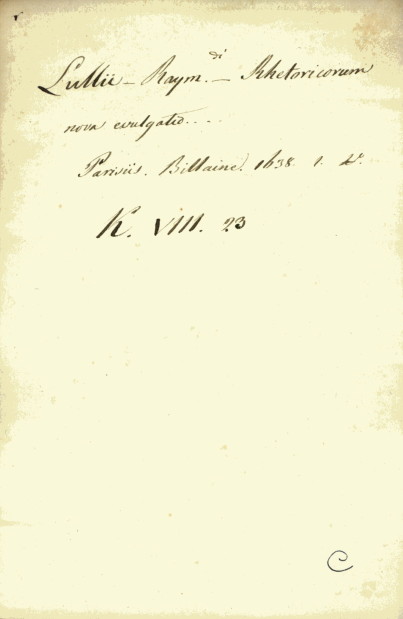 Lullii - Raym.di - Rhetoricorum
nova evulgatio....
Parisiis. Billaine. 1638. 1. 4°.
K. VIII. 23
C